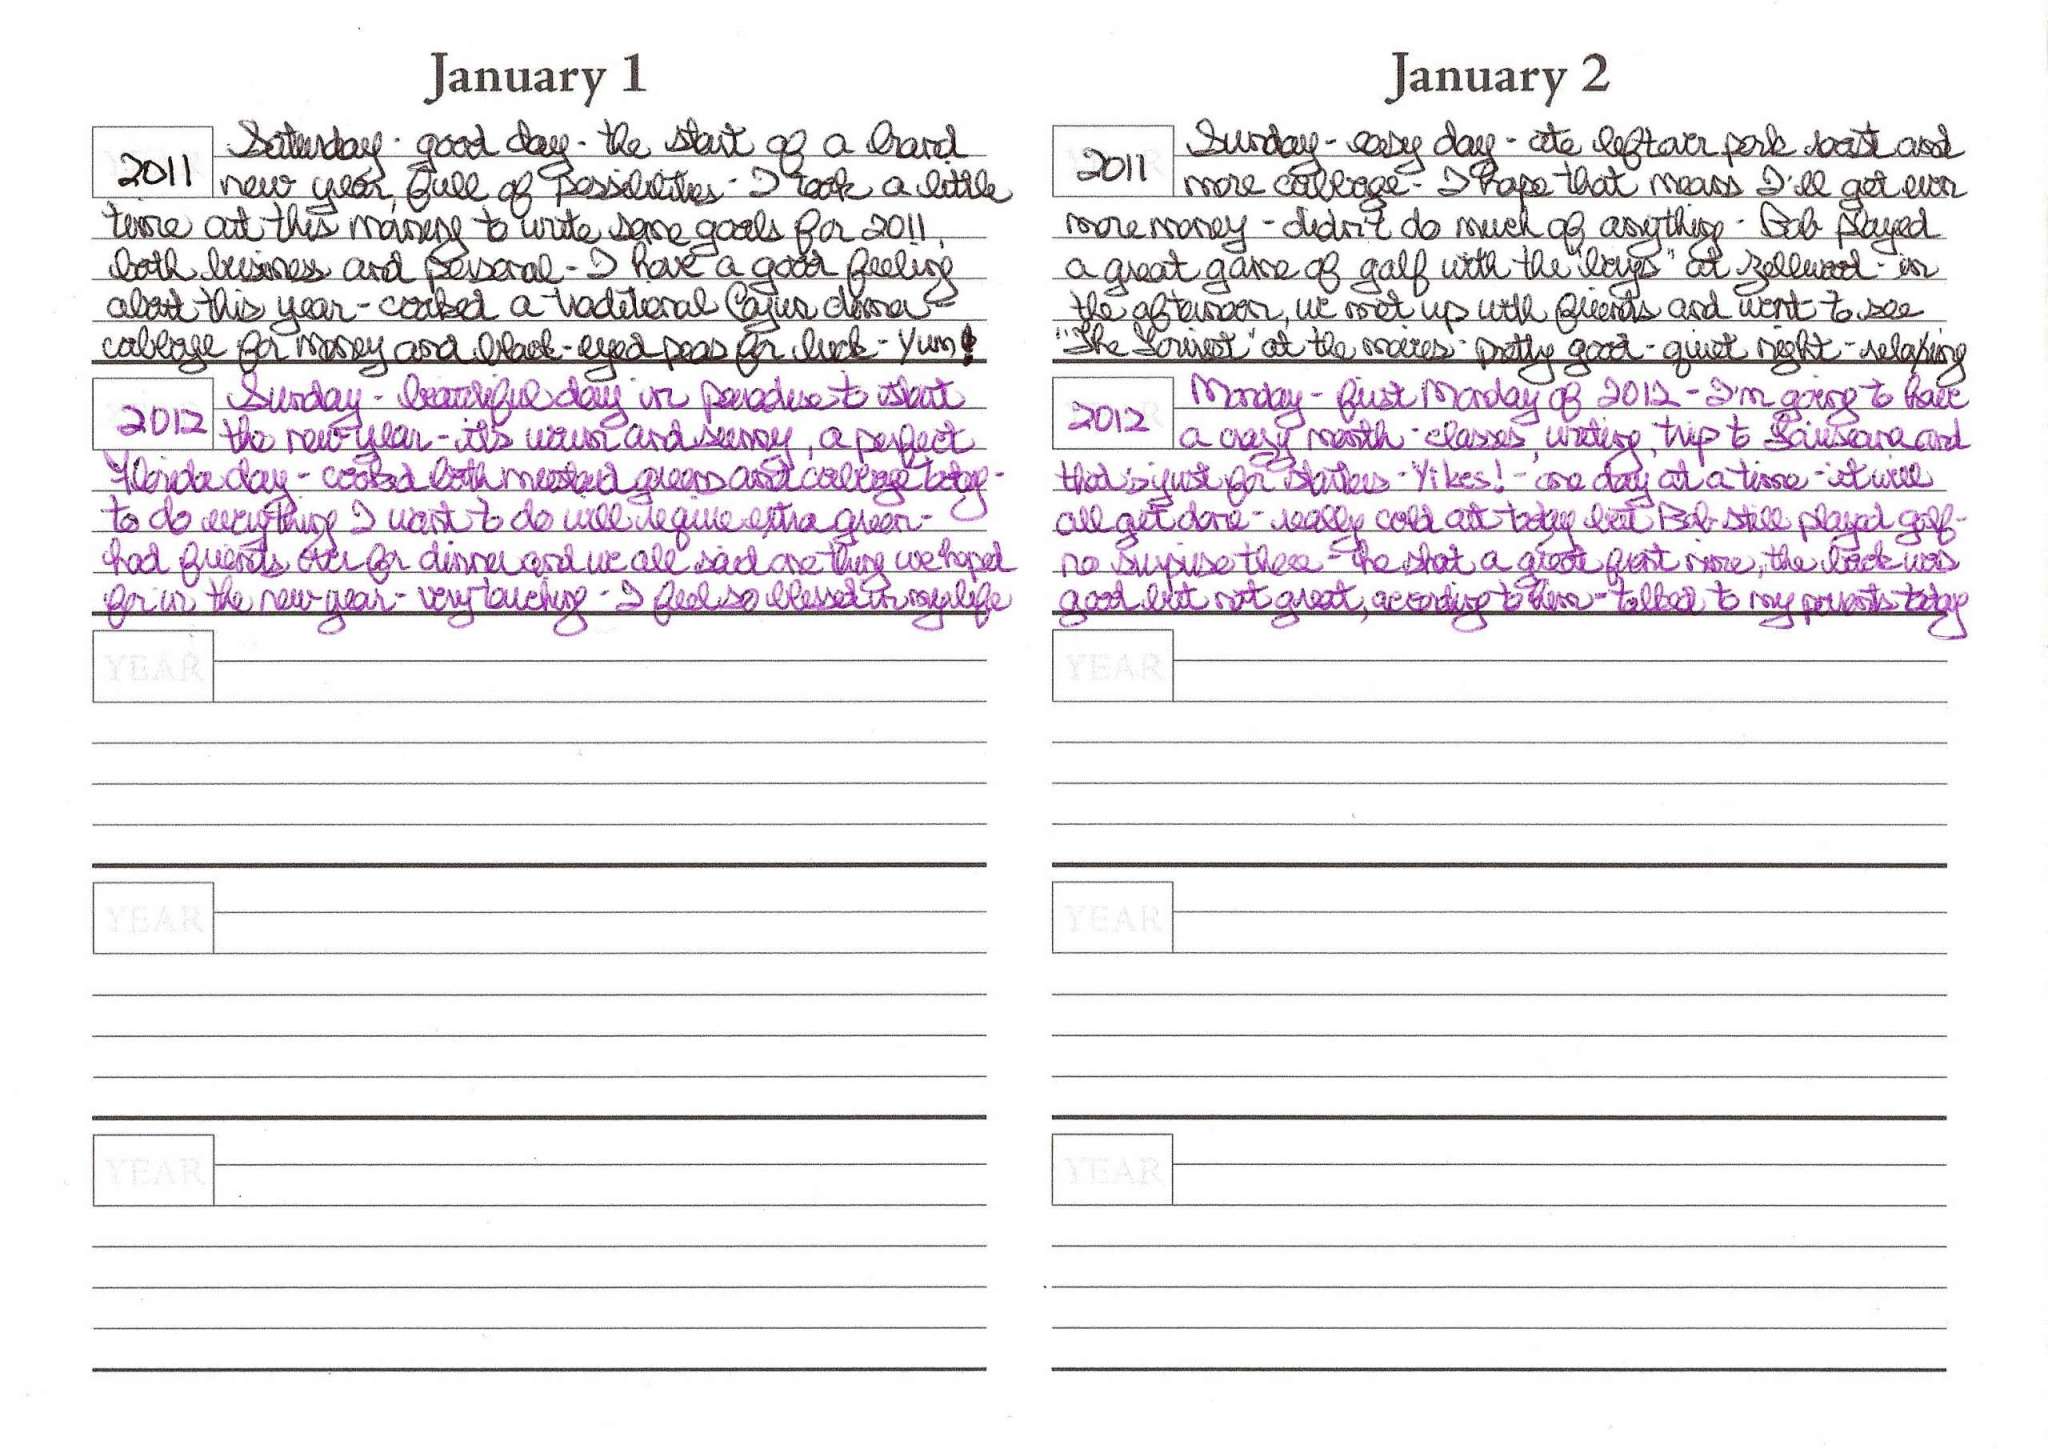 January 1
2011 Saturday - good day - the start of a brand
new year, full of possibilities - I took a little
time out this morning to write some goals for 2011,
both business and personal - I have a good feeling
about this year - cooked a traditional Cajun dinner -
cabbage for money and black-eyed peas for luck - Yum!
2012 Sunday - beautiful day in paradise to start
the new year - it's warm and sunny, a perfect
Florida day - cooked both mustard greens and cabbage today -
to do everything I want to do will require extra green -
had friends over for dinner and we all said one thing we hoped
for in the new year - very touching - I feel so blessed in my life
YEAR
YEAR
YEAR
January 2
2011 Sunday - easy day - ate leftover pork roast and
more cabbage - I hope that means I'll get even
more money - didn't do much of anything - Bob played
a great game of golf with the "boys" at Zellwood - in
the afternoon, we met up with friends and went to see
"The Tourist" at the movies - pretty good - quiet night - relaxing
2012 Monday - first Monday of 2012 - I'm going to have
a crazy month - classes, writing, trip to Louisiana and
that's just for starters - Yikes! - one day at a time - it will
all get done - really cold out today but Bob still played golf -
no surprise there - he shot a great front nine, the back was
good but not great, according to him - talked to my parents today
YEAR
YEAR
YEAR